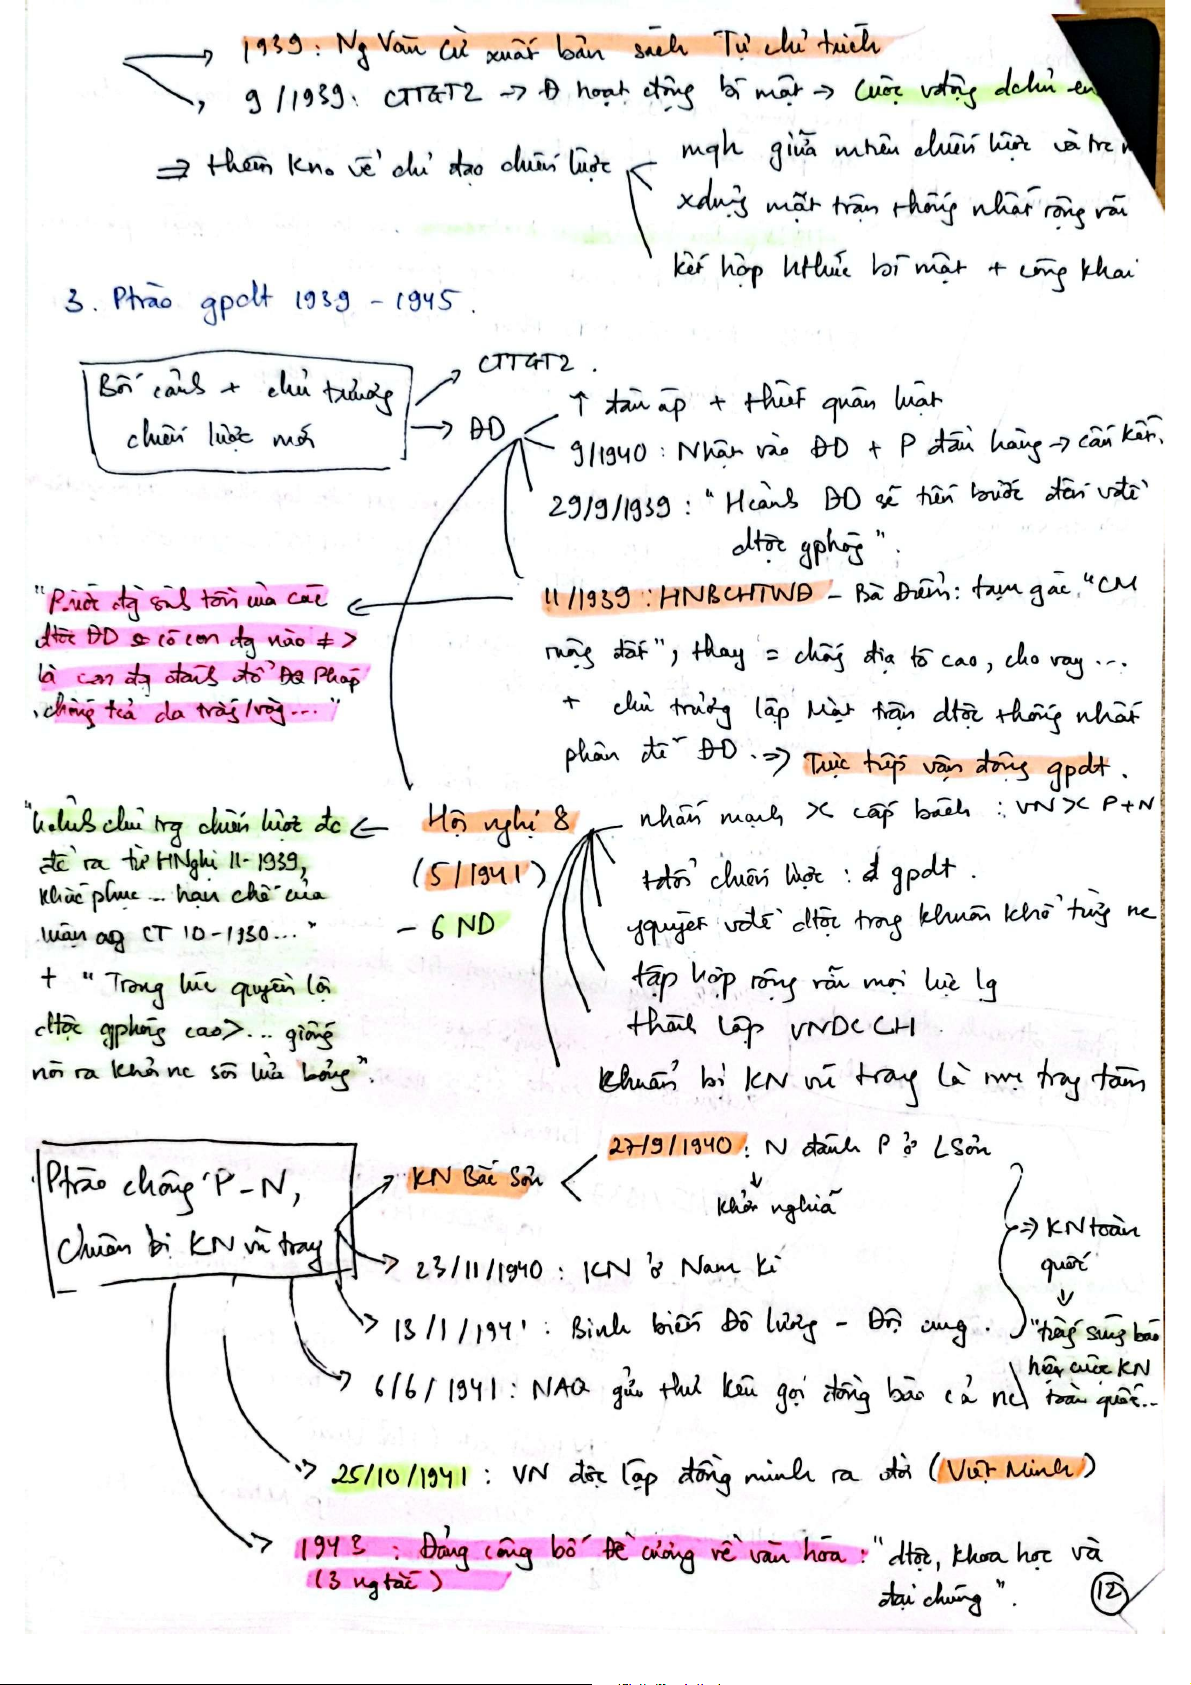 1939: Ng Văn Cừ xuất bản sách Tự chỉ trích
9/1939: CTTGT2 → Đ hoạt động bí mật → Cuộc vđộng dchủ
⇒ thêm kno về chỉ đạo chiến lược
mqh giữa mtiêu chiến lược và trc
xdựng mặt trận thống nhất rộng rãi
kết hợp hthức bí mật + công khai
3. Ptrào gpdt 1939 - 1945.
Bối cảnh + chủ trương
chiến lược mới
CTTGT2.
ĐD
↑ đàn áp + thiết quân luật
9/1940: Nhật vào ĐD + P đầu hàng → cấu kết.
29/9/1939: "Hcảnh ĐD sẽ tiến bước đến vđề
dtộc gphóg".
11/1939: HNBCHTWĐ - Bà Điểm: tạm gác "CM
ruộng đất", thay = chống địa tô cao, cho vay ...
+ chủ trương lập Mặt trận dtộc thống nhất
phản đế ĐD. ⇒ Trực tiếp vận động gpdt.
"Bước đg sinh tồn của các
dtộc ĐD ko có con đg nào ≠ >
là con đg đánh đổ ĐQ Pháp
, chống tcả da trắg/vàg..."
Hội nghị 8
(5/1941)
- 6 ND
nhấn mạnh >< cấp bách : VN >< P+N
tđổi chiến lược : gpdt.
gquyết vđề dtộc trong khuôn khổ từng nc
tập hợp rộng rãi mọi lực lg
thành lập VNDCCH.
chuẩn bị KN vũ trang là nvụ trg tâm
"h.chỉnh chủ trg chiến lược đc
đề ra từ HNghị 11-1939,
khắc phục ... hạn chế của
luận cg CT 10-1930..."
+ "Trong lúc quyền lợi
dtộc gphóng cao>... giống
nòi ra khỏi nc sôi lửa bỏng".
Ptrào chống P-N,
chuẩn bị KN vũ trag
KN Bắc Sơn
27/9/1940: N đánh P ở LSơn
↓
khởi nghĩa
23/11/1940: KN ở Nam Kì
13/1/1941: Binh biến Đô Lương - Đội Cung.
⇒ KN toàn
quốc
↓
"tiếg súng báo
hiệu cuộc KN
toàn quốc...
6/6/1941: NAQ gửi thư kêu gọi đồng bào cả nc
25/10/1941: VN độc lập đồng minh ra đời (Việt Minh)
1943: Đảng công bố Đề cương về văn hóa: "dtộc, khoa học và
(3 ng tắc)
đại chúng".
12